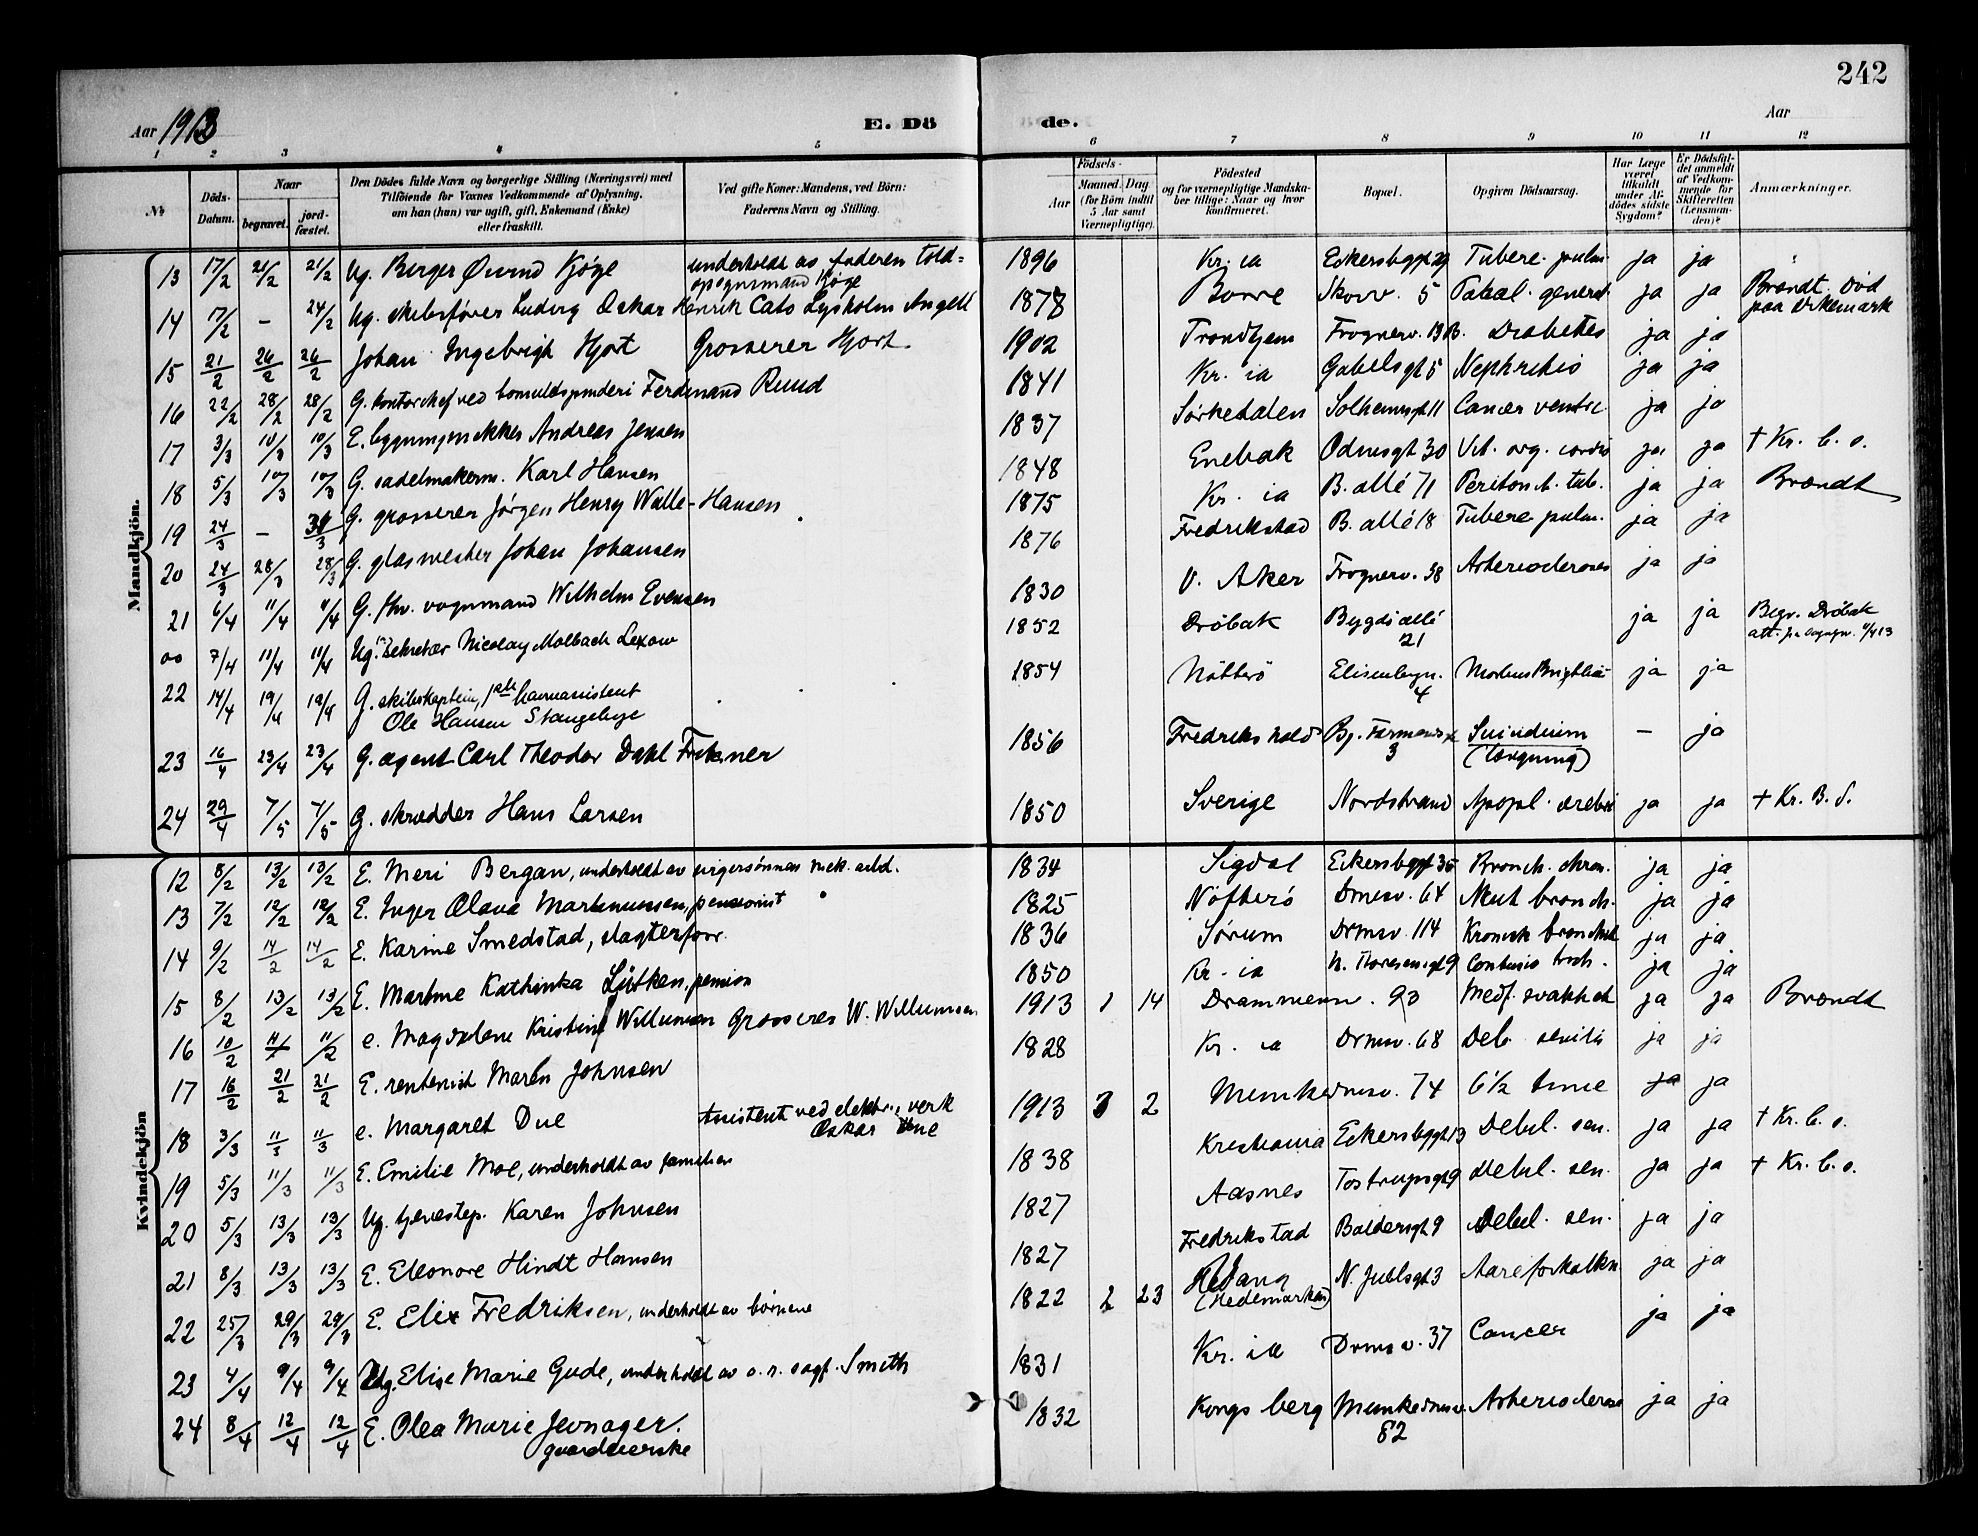 242
Aar 1913
E. Dö
de.
Aar
1 2 3 4 5 6 7 8 9 10 11 12
№
Döds-Datum.
Naar
begravet.
jord-fæstet.
Den Dödes fulde Navn og borgerlige Stilling (Næringsvei) med
Tilföiende for Voxnes Vedkommende af Oplysning,
om han (hun) var ugift, gift, Enkemand (Enke)
eller fraskilt.
Ved gifte Koner: Mandens, ved Börn:
Faderens Navn og Stilling.
Födsels-
Aar
Maaned. Dag
(for Börn indtil
5 Aar samt
Værnepligtige).
Födested
og for værnepligtige Mandska-
ber tillige: Naar og hvor
konfirmeret.
Bopæl.
Opgiven Dödsaarsag.
Har Læge
været
tilkaldt
under Af-
dödes sidste
Sygdom?
Er Dödsfal-
det anmeldt
af Vedkom-
mende for
Skifteretten
(Lensman-
den)?
Anmærkninger.
Mandkjön.
13 17/2 21/2 21/2 Ug. Berger Øivind Kjøge underholdt av faderen told= opsynsmand Kjøge 1896 Kr. ia Eckersbggt 29 Tuberc. pulm. ja ja
14 17/2 – 24/2 Ug. skibsfører Ludvig Oskar Henrik Cato Lysholm Angell 1878 Borre Skovv. 5 ja ja Brændt. Død paa Dikemark
15 21/2 26/2 26/2 Johan Ingebrigt Hjort Grosserer Hjort 1902 Trondhjem Frognerv. 19B. Diabetes ja ja
16 22/2 28/2 28/2 G. kontorchef ved bomuldspinderi Ferdinand Ruud 1841 Kr. ia Gabelsgt 5 Nephritis ja ja
17 3/3 10/3 10/3 E. bygningssnekker Andreas Jensen 1837 Sørkedalen Solheimsgt 11 Cancer ventric. ja ja
18 5/3 10/3 10/3 G. sadelmakerm. Karl Hansen 1848 Enebak Odinsgt 30 Vit. org. cordis ja ja † Kr. b. s.
19 24/3 – 31/3 G. grosserer Jørgen Henry Walle-Hansen 1875 Kr. ia B. allé 71 Peritonit. tub. ja ja Brændt
20 24/3 28/3 28/3 G. glasmester Johan Johansen 1876 Fredrikstad B. allé 18 Tuberc pulm. ja ja
21 6/4 11/4 11/4 G. fhv. vognmand Wilhelm Evensen 1830 V. Aker Frognerv. 38 Arteriosclerose ja ja
00 7/4 11/4 11/4 Ug. Sekretær Nicolay Molbach Lexow 1852 Drøbak Bygdø allé 21 ja ja Begr. Drøbak
22 14/4 19/4 19/4 G. skibskaptein, 1ste havnassistent Ole Hansen Stangebye 1854 Nøtterø Elisenbgv. 4 Morbus Brightii ja ja
23 16/4 23/4 23/4 G. agent Carl Theodor Dahl Frisner 1856 Fredrikshald Bj. Farmannsgt 3 Suicidium – ja
24 29/4 7/5 7/5 G. skrædder Hans Larsen 1850 Sverige Nordstrand Apopl. cerebri ja ja † Kr. B. S.
Kvindekjön
12 8/2 13/2 13/2 E. Meri Bergan, underholdt av svigersønnen mek. arbd. 1834 Sigdal Eckersbggt 35 Bronch. chron. ja ja
13 7/2 12/2 12/2 E. Inger Olava Martinussen, pensionist 1825 Nøtterø Drmsv. 64 Akut bronch. ja ja
14 9/2 14/2 14/2 E. Karine Smedstad, slagterforr. 1836 Sørum Drmsv. 114 Kronisk bronchit ja ja
15 8/2 13/2 13/2 E. Martine Kathinka Lütken, pension 1850 Kr. ia N. Thoresensgt 9 Contusio ja ja
16 10/2 11/2 11/2 e. Magdalene Kristine Willumsen Grosserer W. Willumsen 1913 1 14 Drammensv. 93 Medf. svakhet ja ja Brændt
17 16/2 21/2 21/2 E. rentenist Maren Johnsen 1828 Kr. ia Drmsv. 68 Deb. senilis ja ja
18 3/3 11/3 11/3 e. Margaret Due Assistent ved elektr. verk Oskar Due 1913 3 2 Munkedmsv. 74 6½ time ja ja
19 5/3 11/3 11/3 E. Emilie Moe, underholdt av familien 1838 Kristiania Eckersbggt 13 Debil. sen. ja ja † Kr. b. s.
20 5/3 13/3 13/3 Ug. tjenestep. Karen Johnsen 1827 Aasnes Tostrupsgt 9 Debil. sen. ja ja † Kr. b. s.
21 8/3 13/3 13/3 E. Eleonore Hindt Hansen 1827 Fredrikstad Baldersgt 9 Debil. sen. ja ja
22 25/3 29/3 29/3 E. Elise Fredriksen, underholdt av børnene 1822 2 23 (Hedemarken) N. Juelsgt 3 Aareforkalkn. ja ja
23 4/4 9/4 9/4 Ug. Elise Marie Gude, underholdt av o. r. sagf. Smith 1831 Kr. ia Drmsv. 37 Cancer ja ja
24 8/4 12/4 12/4 E. Olea Marie Jevnager. gvarderske 1832 Kongsberg Munkedmsv. 82 Arteriosclerose ja ja